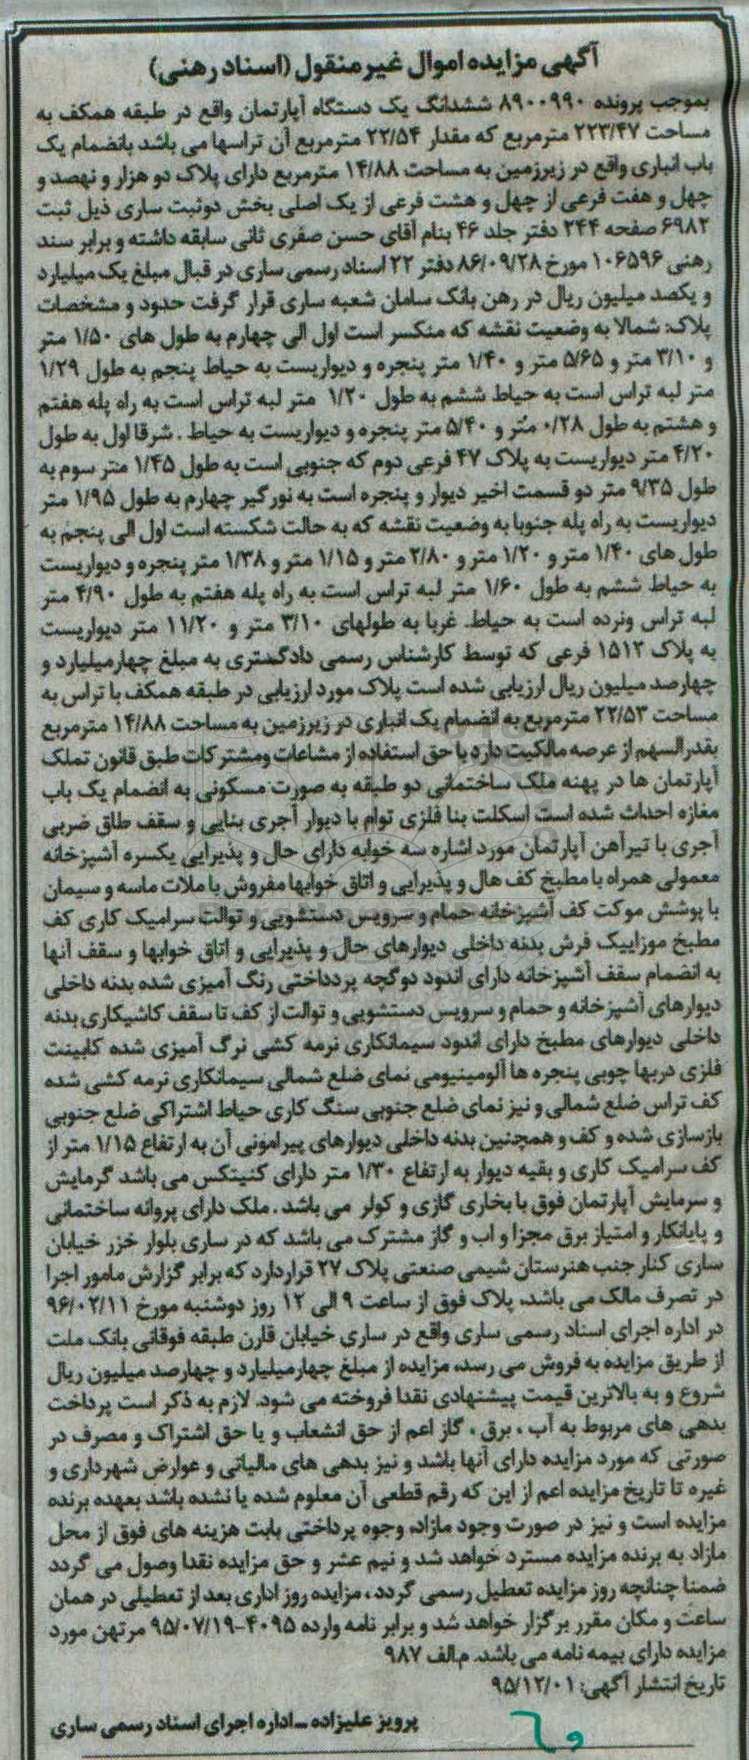 آگهی مزایده اموال غیر منقول (اسناد رهنی)
بموجب پرونده ۸۹۰۰۹۹۰ ششدانگ یک دستگاه آپارتمان واقع در طبقه همکف به
مساحت ۲۲۳/۴۷ مترمربع که مقدار ۲۲/۵۴ مترمربع آن تراسها می باشد بانضمام یک
باب انباری واقع در زیرزمین به مساحت ۱۴/۸۸ مترمربع دارای پلاک دو هزار و نهصد و
چهل و هفت فرعی از چهل و هشت فرعی از یک اصلی بخش دو ثبت ساری ذیل ثبت
۶۹۸۲ صفحه ۲۴۴ دفتر جلد ۴۶ بنام آقای حسن صفری ثانی سابقه داشته و برابر سند
رهنی ۱۰۶۵۹۶ مورخ ۸۶/۰۹/۲۸ دفتر ۲۲ اسناد رسمی ساری در قبال مبلغ یک میلیارد
و یکصد میلیون ریال در رهن بانک سامان شعبه ساری قرار گرفت حدود و مشخصات
پلاک: شمالا به وضعیت نقشه که منکسر است اول الی چهارم به طول های ۱/۵۰ متر
و ۳/۱۰ متر و ۵/۶۵ متر و ۱/۴۰ متر پنجره و دیواریست به حیاط پنجم به طول ۱/۲۹
متر لبه تراس است به حیاط ششم به طول ۱/۲۰ متر لبه تراس است به راه پله هفتم
و هشتم به طول ۰/۲۸ متر و ۵/۴۰ متر پنجره و دیواریست به حیاط . شرقا اول به طول
۴/۲۰ متر دیواریست به پلاک ۴۷ فرعی دوم که جنوبی است به طول ۱/۴۵ متر سوم به
طول ۹/۳۵ متر دو قسمت اخیر دیوار و پنجره است به نورگیر چهارم به طول ۱/۹۵ متر
دیواریست به راه پله جنوبا به وضعیت نقشه که به حالت شکسته است اول الی پنجم به
طول های ۱/۴۰ متر و ۱/۲۰ متر و ۲/۸۰ متر و ۱/۱۵ متر و ۱/۳۸ متر پنجره و دیواریست
به حیاط ششم به طول ۱/۶۰ متر لبه تراس است به راه پله هفتم به طول ۴/۹۰ متر
لبه تراس ونرده است به حیاط. غربا به طولهای ۳/۱۰ متر و ۱۱/۲۰ متر دیواریست
به پلاک ۱۵۱۲ فرعی که توسط کارشناس رسمی دادگستری به مبلغ چهارمیلیارد و
چهارصد میلیون ریال ارزیابی شده است پلاک مورد ارزیابی در طبقه همکف با تراس به
مساحت ۲۲/۵۳ مترمربع به انضمام یک انباری در زیرزمین به مساحت ۱۴/۸۸ مترمربع
بقدرالسهم از عرصه مالکیت دارد با حق استفاده از مشاعات ومشترکات طبق قانون تملک
آپارتمان ها در پهنه ملک ساختمانی دو طبقه به صورت مسکونی به انضمام یک باب
مغازه احداث شده است اسکلت بنا فلزی توام با دیوار آجری بنایی و سقف طاق ضربی
آجری با تیرآهن آپارتمان مورد اشاره سه خوابه دارای حال و پذیرایی یکسره آشپزخانه
معمولی همراه با مطبخ کف هال و پذیرایی و اتاق خوابها مفروش با ملات ماسه و سیمان
با پوشش موکت کف آشپزخانه حمام و سرویس دستشویی و توالت سرامیک کاری کف
مطبخ موزاییک فرش بدنه داخلی دیوارهای حال و پذیرایی و اتاق خوابها و سقف آنها
به انضمام سقف آشپزخانه دارای اندود دوگچه پرداختی رنگ آمیزی شده بدنه داخلی
دیوارهای آشپزخانه و حمام و سرویس دستشویی و توالت از کف تا سقف کاشیکاری بدنه
داخلی دیوارهای مطبخ دارای اندود سیمانکاری نرمه کشی نرگ آمیزی شده کابینت
فلزی دربها چوبی پنجره ها آلومینیومی نمای ضلع شمالی سیمانکاری نرمه کشی شده
کف تراس ضلع شمالی و نیز نمای ضلع جنوبی سنگ کاری حیاط اشتراکی ضلع جنوبی
بازسازی شده و کف و همچنین بدنه داخلی دیوارهای پیرامونی آن به ارتفاع ۱/۱۵ متر از
کف سرامیک کاری و بقیه دیوار به ارتفاع ۱/۳۰ متر دارای کنیتکس می باشد گرمایش
و سرمایش آپارتمان فوق با بخاری گازی و کولر می باشد . ملک دارای پروانه ساختمانی
و پایانکار و امتیاز برق مجزا و اب و گاز مشترک می باشد که در ساری بلوار خزر خیابان
ساری کنار جنب هنرستان شیمی صنعتی پلاک ۲۷ قراردارد که برابر گزارش مامور اجرا
در تصرف مالک می باشد. پلاک فوق از ساعت ۹ الی ۱۲ روز دوشنبه مورخ ۹۶/۰۲/۱۱
در اداره اجرای اسناد رسمی ساری واقع در ساری خیابان قارن طبقه فوقانی بانک ملت
از طریق مزایده به فروش می رسد. مزایده از مبلغ چهارمیلیارد و چهارصد میلیون ریال
شروع و به بالاترین قیمت پیشنهادی نقدا فروخته می شود. لازم به ذکر است پرداخت
بدهی های مربوط به آب ، برق ، گاز اعم از حق انشعاب و یا حق اشتراک و مصرف در
صورتی که مورد مزایده دارای آنها باشد و نیز بدهی های مالیاتی و عوارض شهرداری و
غیره تا تاریخ مزایده اعم از این که رقم قطعی آن معلوم شده یا نشده باشد بعهده برنده
مزایده است و نیز در صورت وجود مازاد، وجوه پرداختی بابت هزینه های فوق از محل
مازاد به برنده مزایده مسترد خواهد شد و نیم عشر و حق مزایده نقدا وصول می گردد
ضمنا چنانچه روز مزایده تعطیل رسمی گردد ، مزایده روز اداری بعد از تعطیلی در همان
ساعت و مکان مقرر برگزار خواهد شد و برابر نامه وارده ۴۰۹۵-۹۵/۰۷/۱۹ مرتهن مورد
مزایده دارای بیمه نامه می باشد. م.الف ۹۸۷
تاریخ انتشار آگهی: ۹۵/۱۲/۰۱
پرویز علیزاده ــ اداره اجرای اسناد رسمی ساری